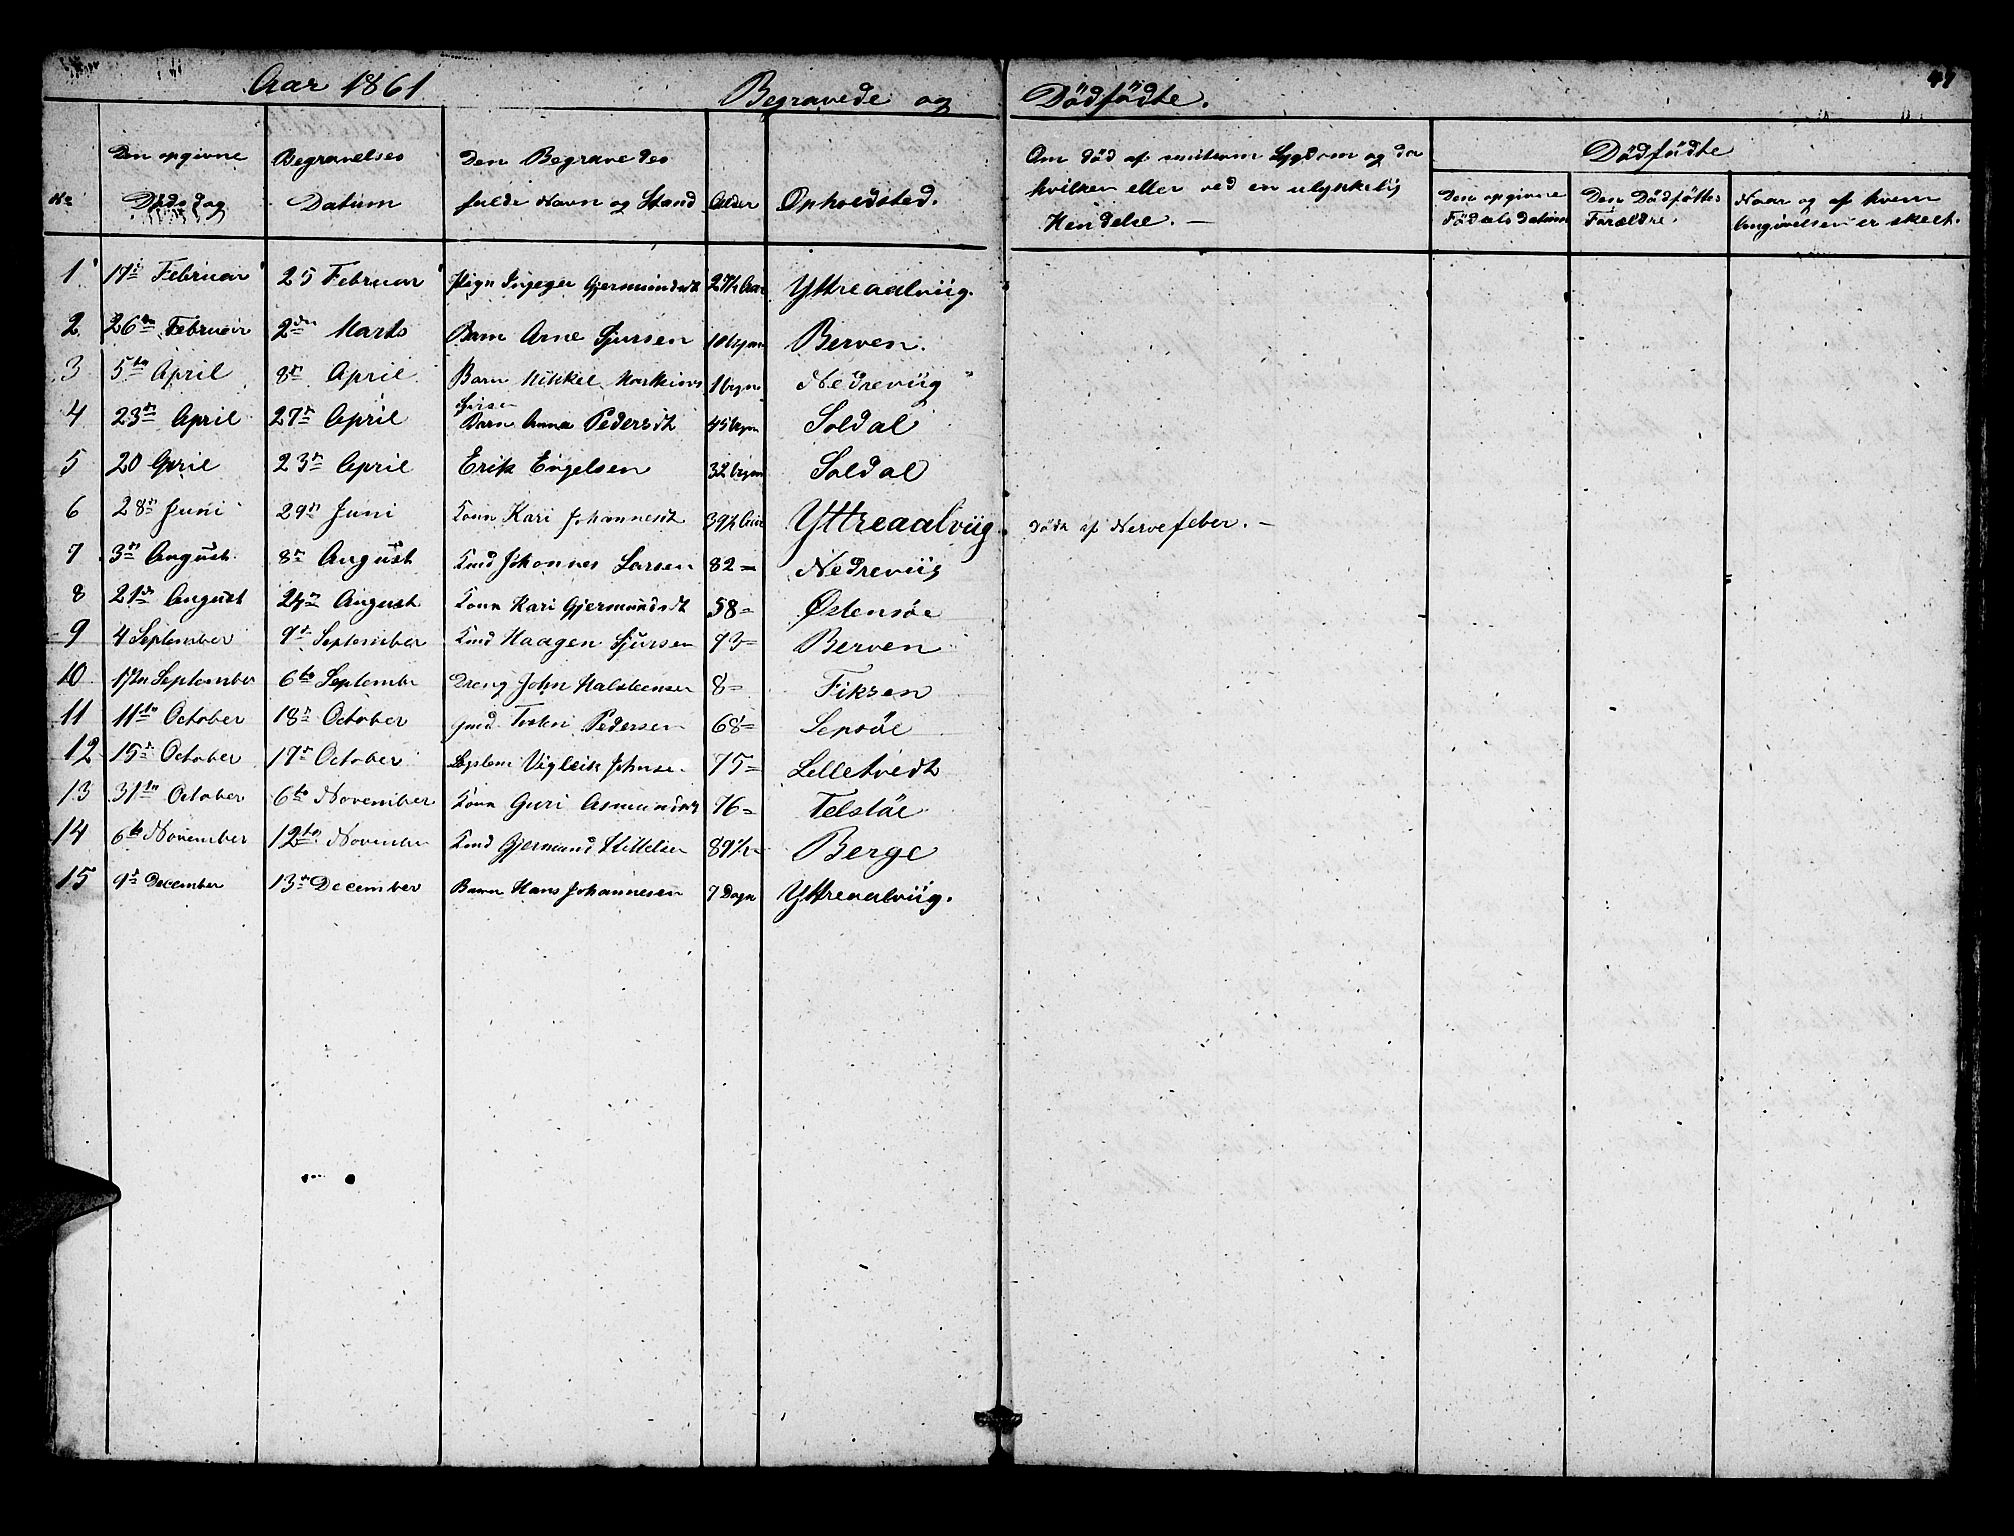 Aar 1861 Begravede og Dödfödte. 47
No Den opgivne Dödsdag Begravelses Datum Den Begravedes fulde Navn og Stand Alder Opholdsted. Om död af smitsom Sygdom og da hvilken eller ved en ulykkelig Hendelse. — Dödfödte
Den opgivne Födselsdatum Den Dödföttes Forældre. Naar og af hvem Angivelsen er skeet.
1 17de Februar 25 Februar Pign Ingeger Gjermundsdt 27½ Aar Yttreaalviig.
2 26de Februar 2den Marts Barn Arne Sjursen 18 Ugen Berven.
3 5te April 8de April Barn Mikkel 1 Nedreviig
4 23de April 27de April Barn Anna Pedersdt 45 Ugen Soldal
5 20 April 23de April Erik Engelsen 32 Ugen Soldal
6 28de Juni 29de Juni Kone Kari Johannesdt 39½ Aar Yttreaalviig. Döde af Nervefeber. —
7 3de August 8de August Kmd Johannes Larsen 82 = Nedreviig
8 21de August 24de August Kone Kari Gjermundsdt 58 = Östensöe
9 4 September 9de September Kmd Haagen Sjursen 73 = Berven
10 17 September 6te September Dreng John Halsteensen 8 = Fiksen
11 11te October 18de October Pedersen 68 = Sepsöe
12 15de October 17de October Vigleik Johnsen 75 = Lelletvedt
13 31te October 6te November Kone Guri Asmundsdt 76 = Telstöe
14 6te November 12te November Kmd Gjermund Kittelsen 89½ = Berge
15 9de December 13de December Barn Hans Johannesen 7 Dage Yttreaalviig.